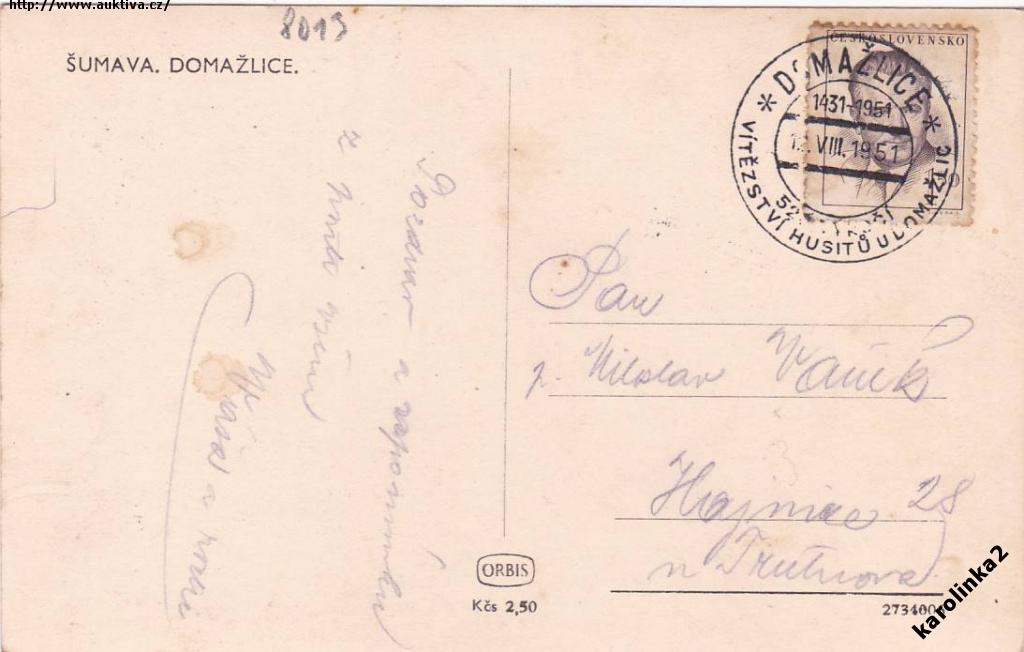 http://www.auktiva.cz/
8013
ŠUMAVA. DOMAŽLICE.
Pozdrav a vzpomínku
z
Váša a
ČESKOSLOVENSKO
DOMAŽLICE
1431-1951
VIII. 1951
VÍTĚZSTVÍ HUSITŮ U DOMAŽLIC
Pan
p. Miloslav Vaník
Hajnice 28
u Trutnova
ORBIS
Kčs 2,50
273400
karolinka2